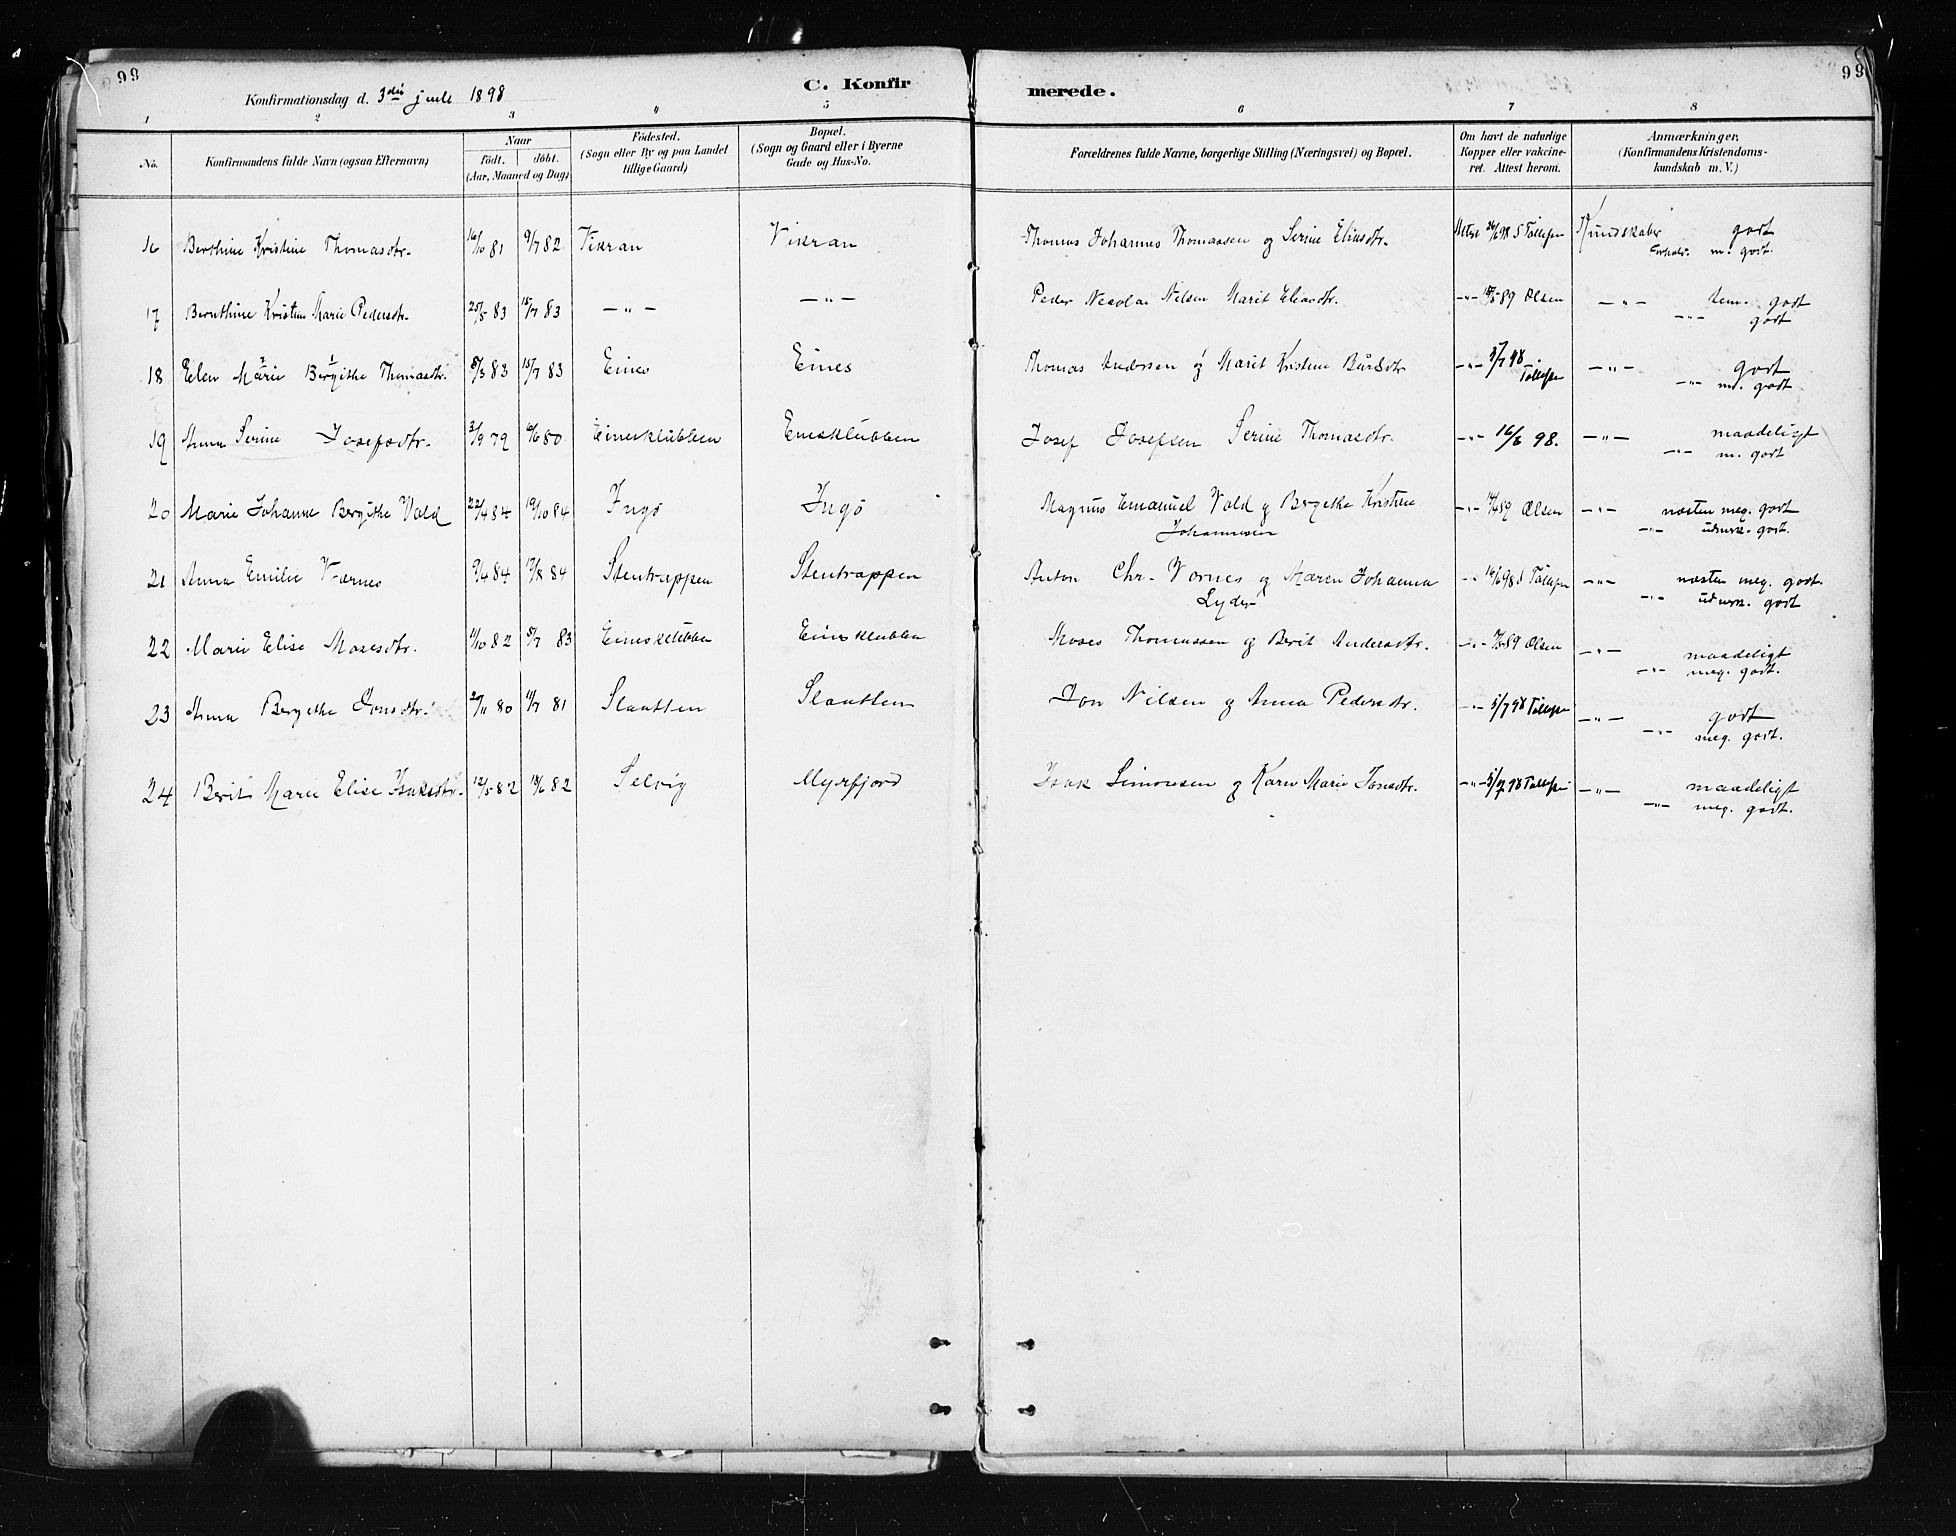 99
99
Konfirmationsdag d. 3die juli 1898
C. Konfirmerede.
1 2 3 4 5 6 7 8
No.
Konfirmandens fulde Navn (ogsaa Efternavn)
Naar
födt. döbt.
(Aar, Maaned og Dag)
Födested.
(Sogn eller By og paa Landet
tillige Gaard)
Bopæl.
(Sogn og Gaard eller i Byerne
Gade og Hus-No.
Forældrenes fulde Navne, borgerlige Stilling (Næringsvei) og Bopæl.
Om havt de naturlige
Kopper eller vakcine-
ret. Attest herom.
Anmærkninger.
(Konfirmandens Kristendoms-
kundskab m. V.)
16 Berthine Kristine Thomasdtr. 16/10 81 9/7 82 Vikran Vikran Thomas Johannes Thomassen og Serine Eliasdtr. Attest 26/6 98 S Tollefsen Kundskaber godt
Forhold. m. godt.
17 Bernthine Kristine Marie Pedersdtr. 25/5 83 15/7 83 —"— —"— Peder Nicolai Nilsen Marit Eliasdtr. —"— 89 Olsen —"— tem. godt
—"— godt
18 Elen Marie Bergithe Thomasdtr. 8/3 83 15/7 83 Eines Eines Thomas Andersen og Marit Kristine —"— 3/7 98 Tollefsen —"— godt
—"— m. godt
19 Anna Serine Josefsdtr. 3/9 79 6/6 80 Einesklubben Einesklubben Josef Josefsen Serine Thomasdtr. —"— 16/6 98. —"— maadeligt
—"— m. godt
20 Marie Johanne Bergithe Vold 22/4 84 19/10 84 Ingö Ingö Magnus Emanuel Vold og Bergithe Kristine
Johannesen —"— 89 Olsen —"— næsten meg. godt
—"— udmrk. godt.
21 Anna Emilie Værnes 9/4 84 17/8 84 Stentrappen Stentrappen Anton Chr. Vornes og Maren Johanna
Lyder —"— 16/6 98 S Tollefsen —"— næsten meg. godt.
—"— udmrk. godt
22 Marie Elise Mosesdtr. 11/10 82 8/7 83 Einesklubben Einesklubben Moses Thomassen og Berit Andersdtr. —"— 89 Olsen —"— maadeligt
—"— meg. godt.
23 Anna Bergithe Jonsdtr. 27/11 80 11/7 81 Slaatten Slaatten Jon Nilsen og Anna Pedersdtr. —"— 3/7 98 Tollefsen —"— godt
—"— meg. godt.
24 Berit Marie Elise Isaksdtr. 12/5 82 18/6 82 Selvig Myrfjord Isak Simonsen og Karen Marie Jonsdtr. —"— 3/7 98 Tollefsen —"— maadeligt
—"— meg. godt.